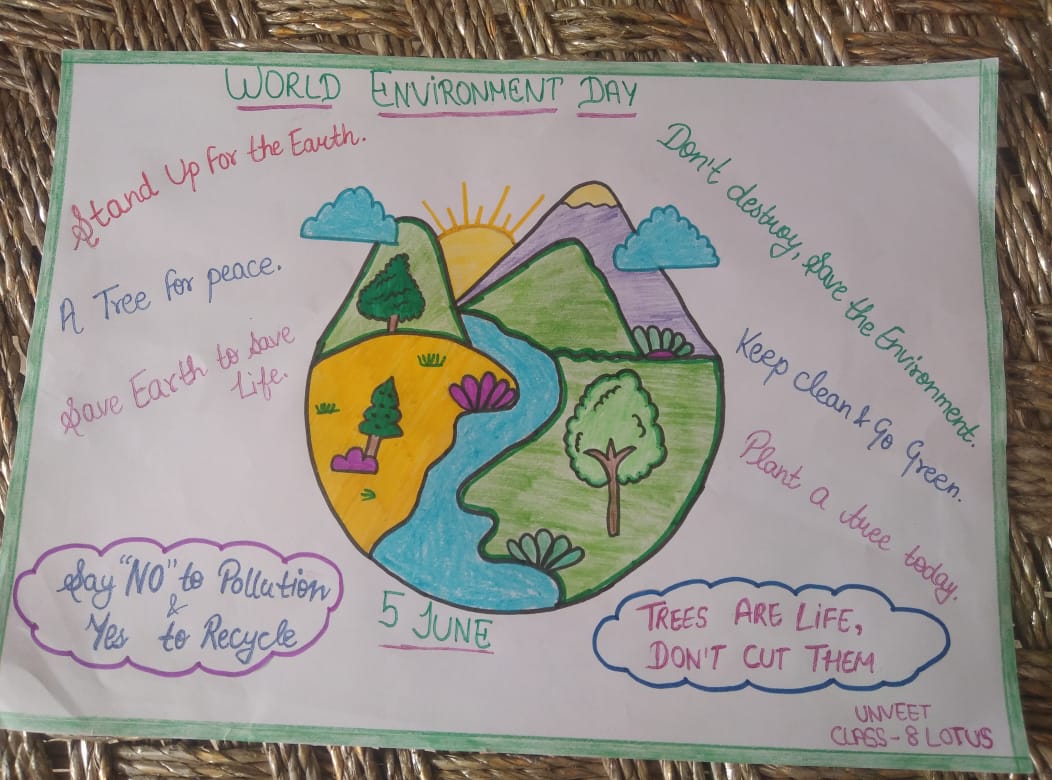 WORLD ENVIRONMENT DAY
Stand Up for the Earth.
A Tree for peace.
Save Earth to save
Life.
Don't destroy, Save the Environment.
Keep clean & Go Green.
Plant a tree today.
Say "NO" to Pollution
&
Yes to Recycle
5 JUNE
TREES ARE LiFE,
DON'T CUT THEM
UNVEET
CLASS-8 LOTUS